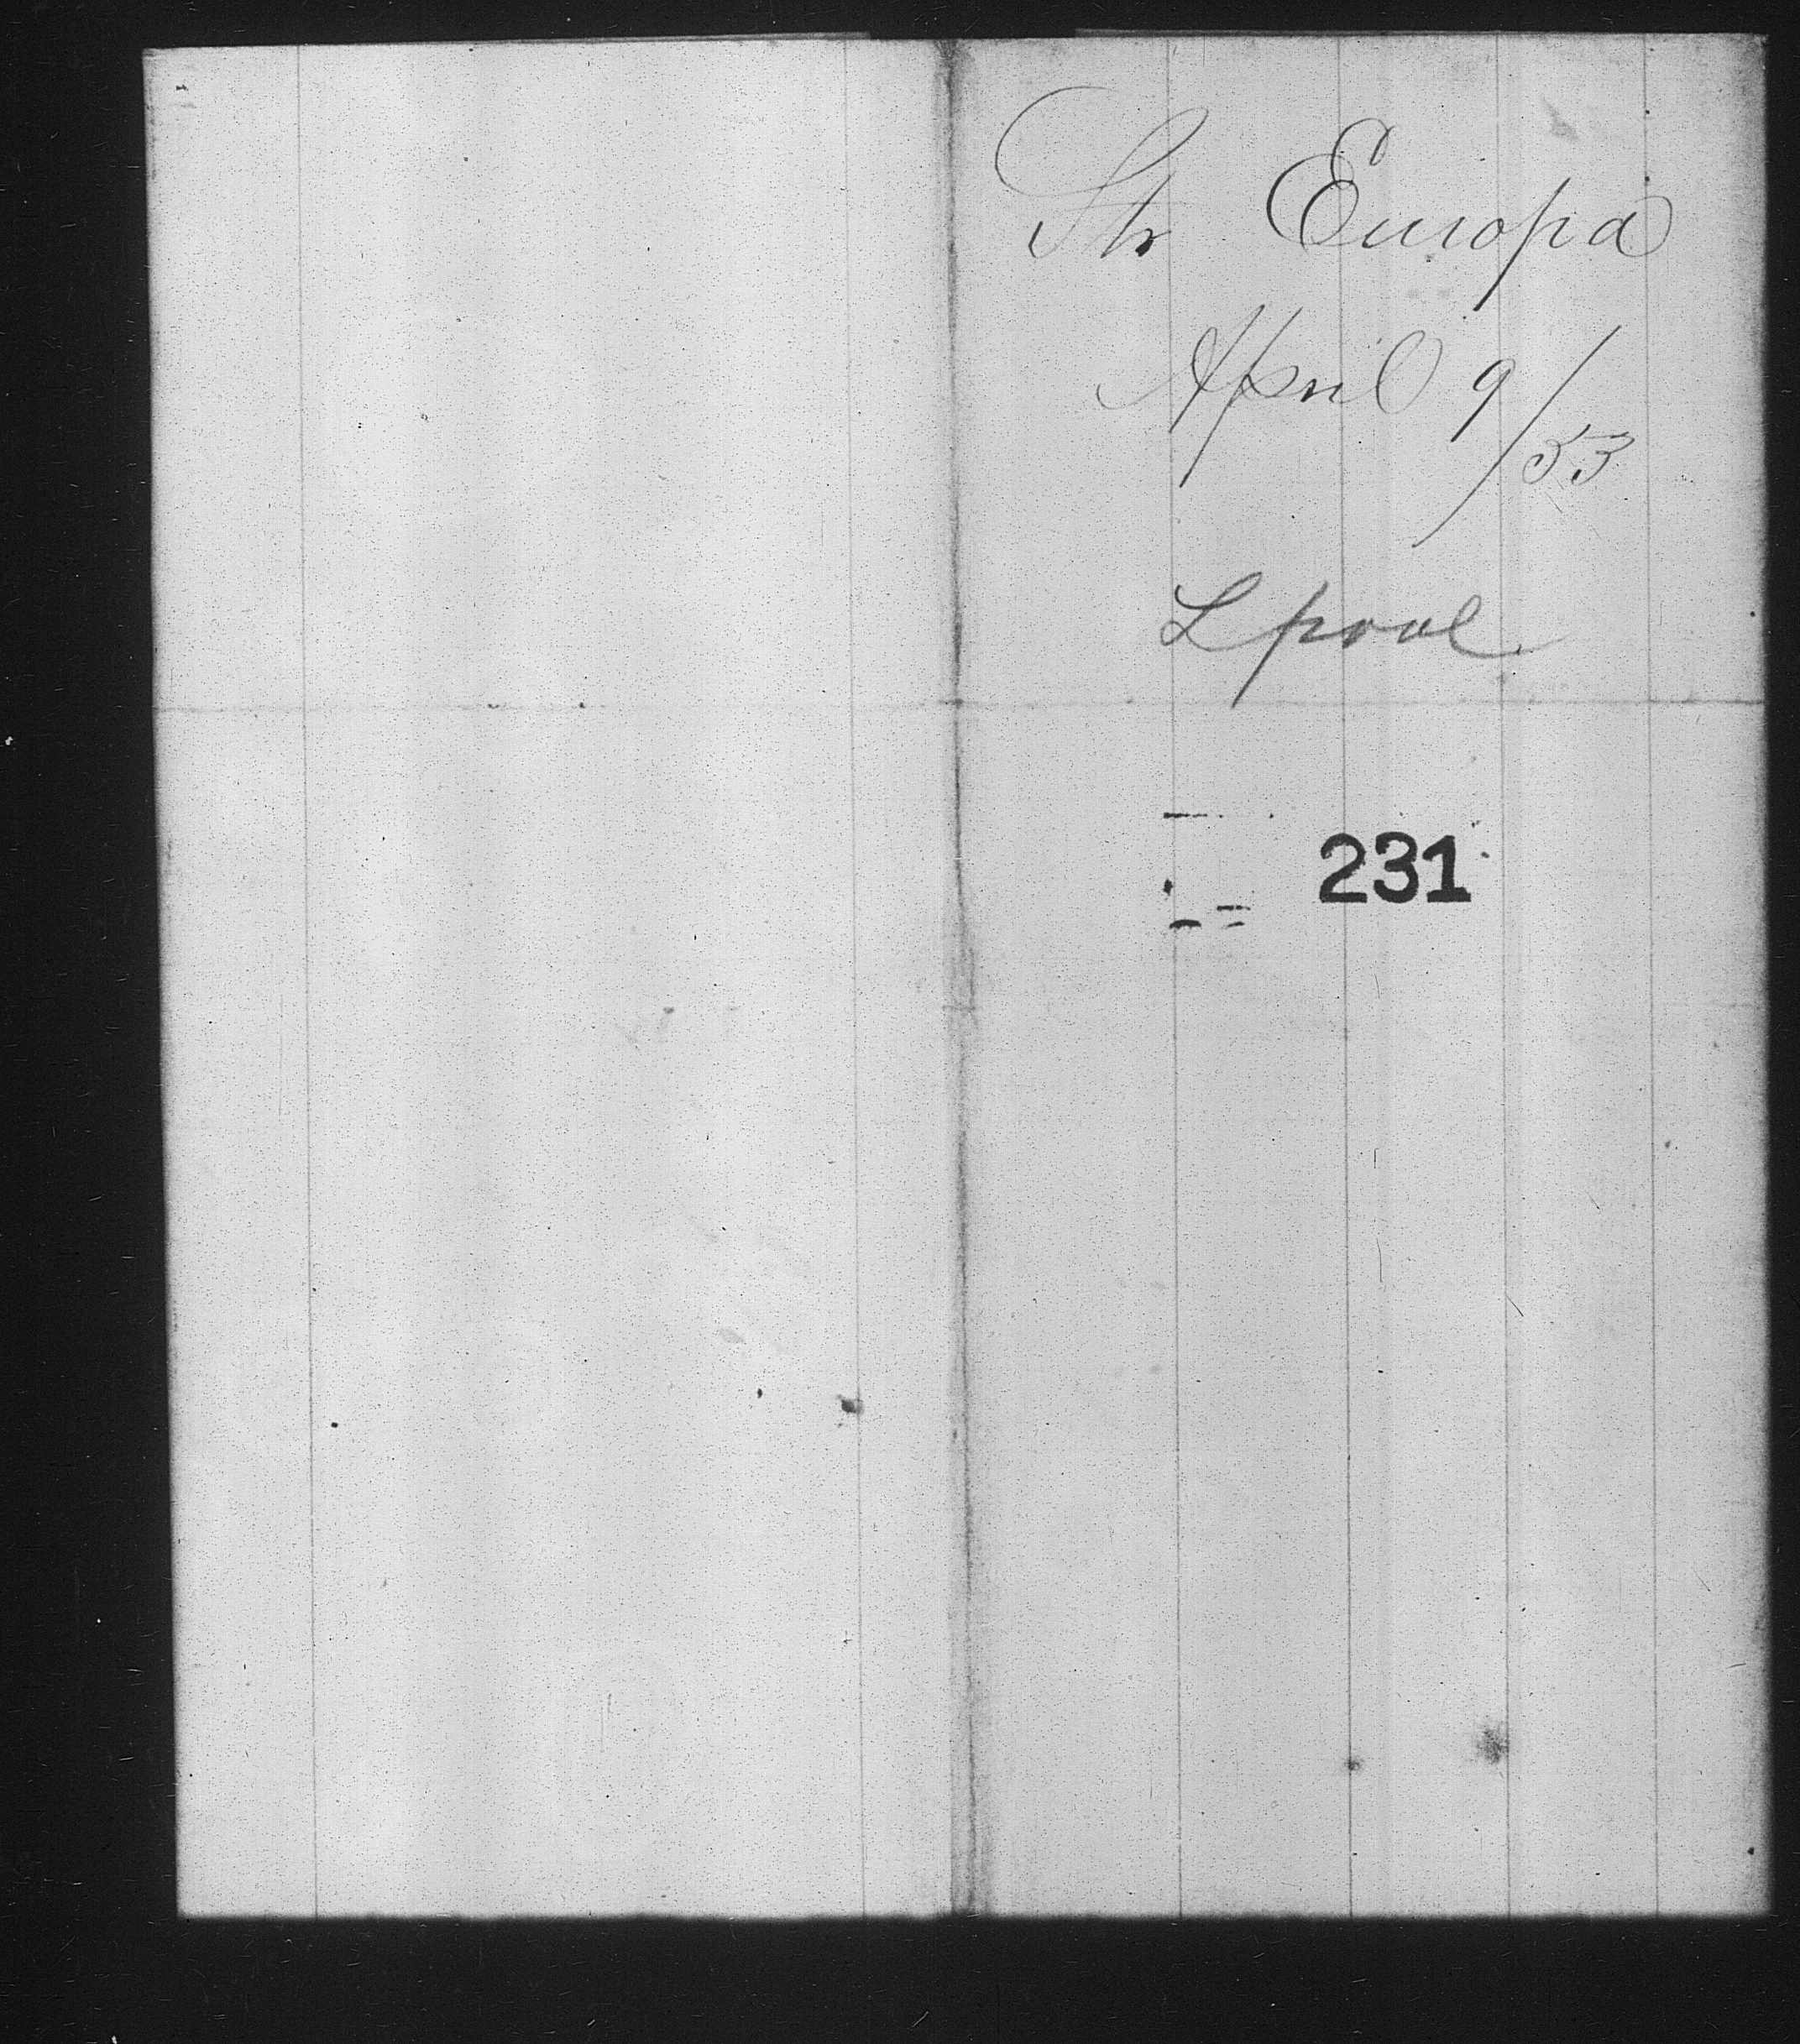 Str Europa
April 9/53
Lpool
231